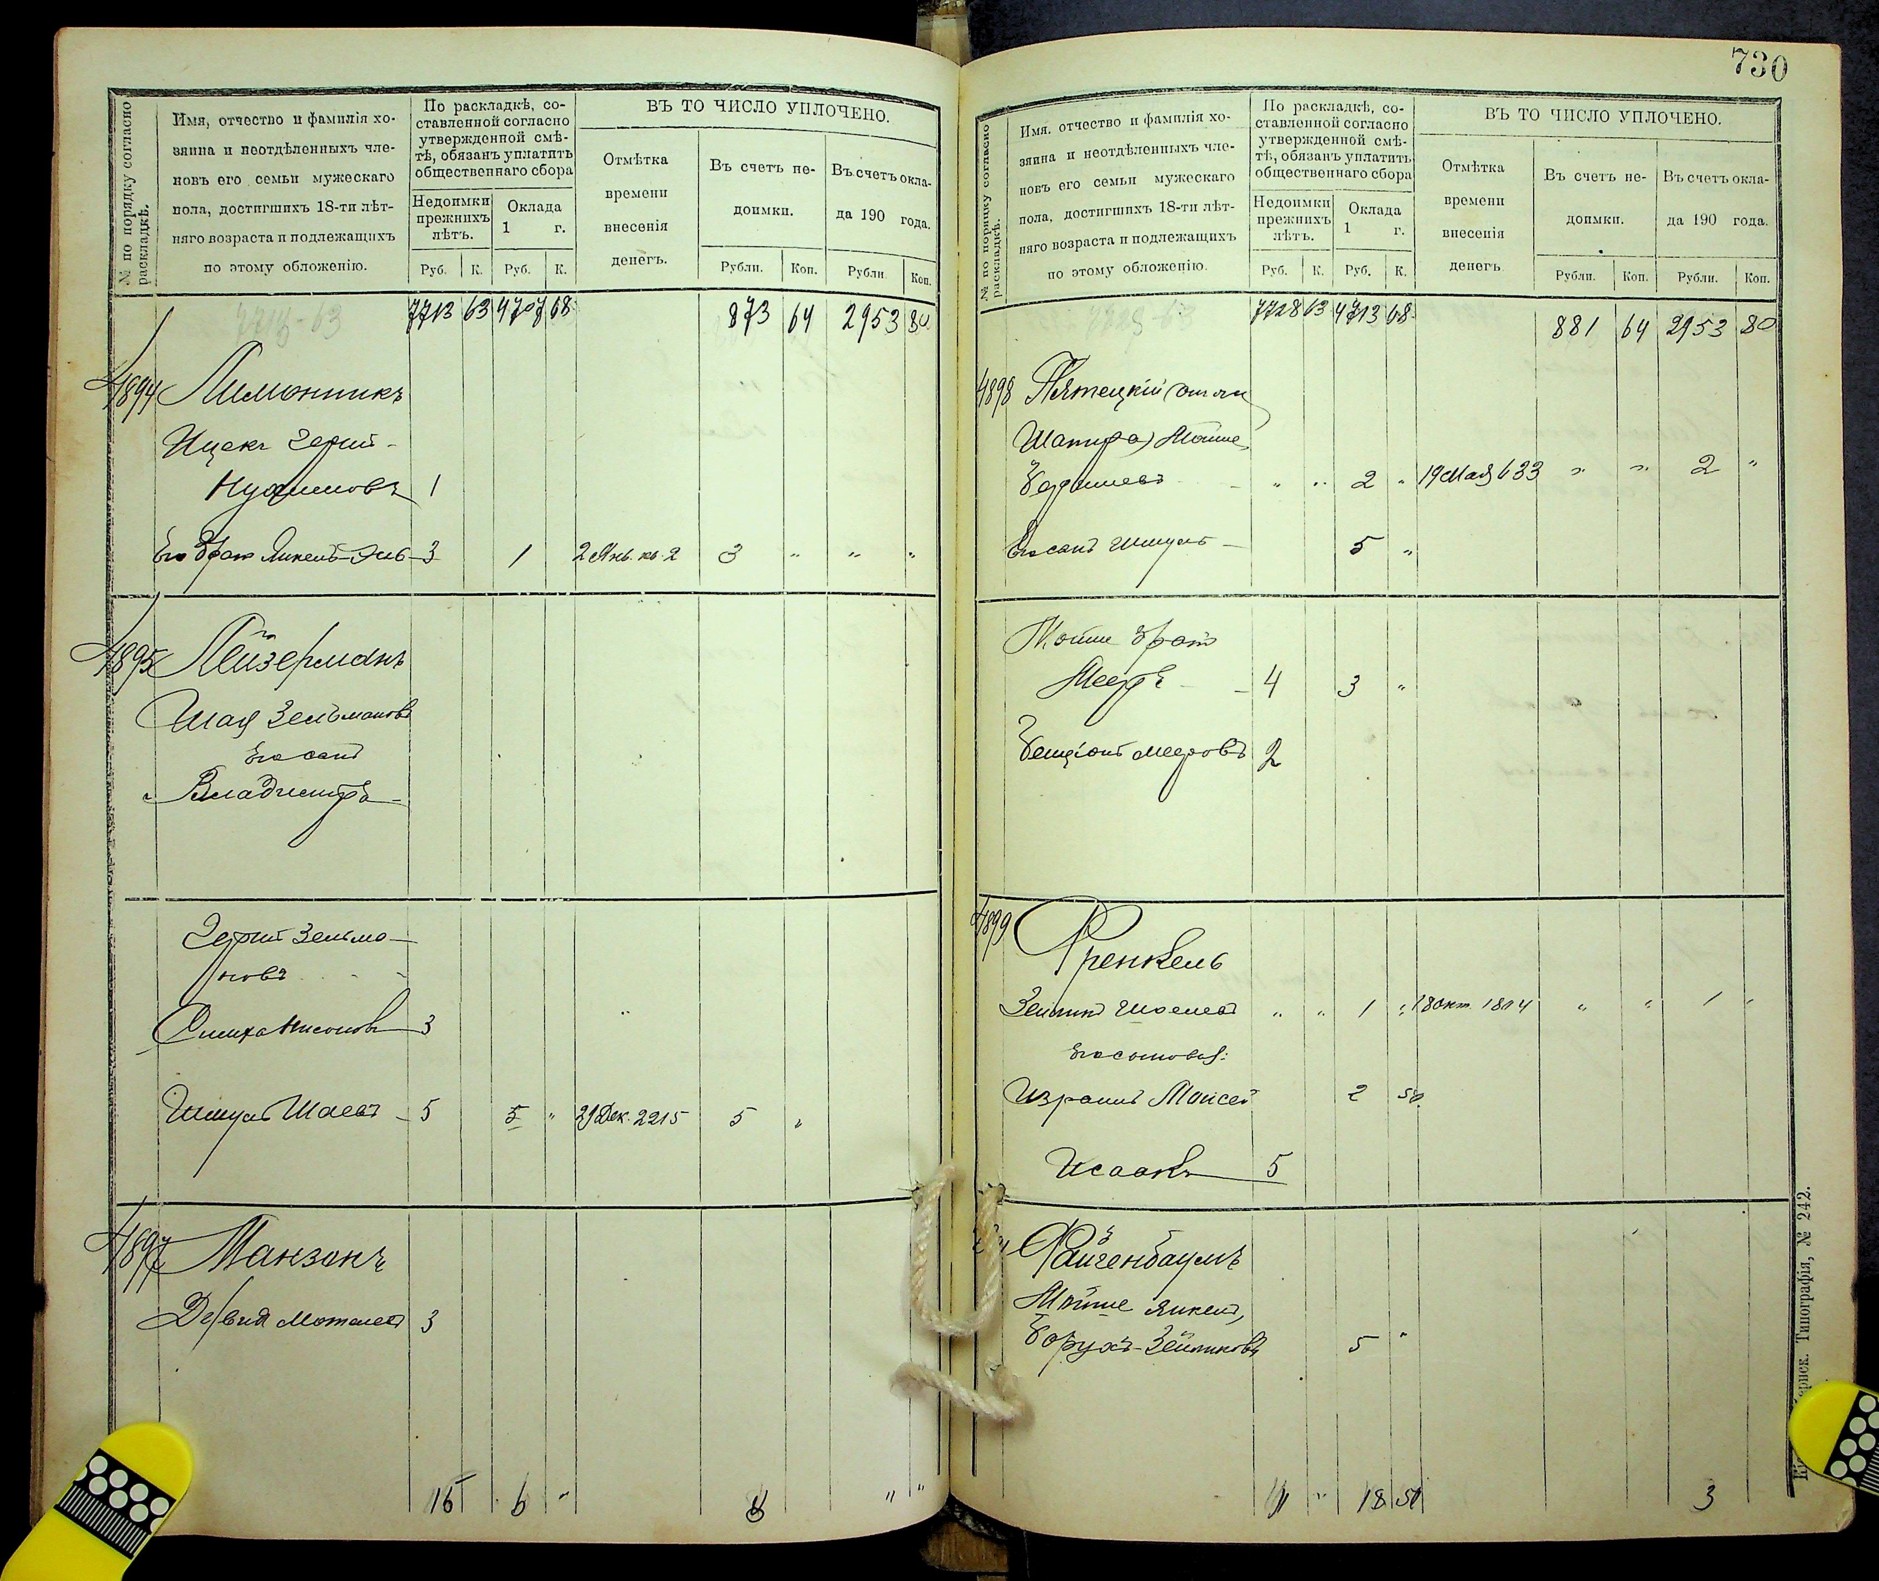 730
№ по порядку согласно раскладкѣ.
Имя, отчество и фамилія хо-
зяина и неотдѣленныхъ чле-
новъ его семьи мужескаго
пола, достигшихъ 18-ти лѣт-
няго возраста и подлежащихъ
по этому обложенію.
По раскладкѣ, со-
ставленной согласно
утвержденной смѣ-
тѣ, обязанъ уплатить
общественнаго сбора
Недоимки
прежнихъ
лѣтъ.
Оклада
1 г.
Руб. К. Руб. К.
ВЪ ТО ЧИСЛО УПЛОЧЕНО.
Отмѣтка
времени
внесенія
денегъ.
Въ счетъ не-
доимки.
Въ счетъ окла-
да 190 года.
Рубли. Коп. Рубли Коп.
7713 63 4707 68 873 64 2953 80
4894 Лимонникъ
Ицекъ Герш-
Нухимовъ 1
Его братъ Янкель 3 1 2 Янв. кв. 2 3 " " "
4895 Лейзерманъ
Шая Зельмановъ
Его сынъ
Владимиръ
Гершъ Зельма-
новъ
3
Шмуль Шаевъ 5 5 " 29 Дек. 2215 5 "
4897 Манзонъ
Мотелев 3
15 6 " 8 " "
№ по порядку согласно раскладкѣ.
Имя, отчество и фамилія хо-
зяина и неотдѣленныхъ чле-
новъ его семьи мужескаго
пола, достигшихъ 18-ти лѣт-
няго возраста и подлежащихъ
по этому обложенію.
По раскладкѣ, со-
ставленной согласно
утвержденной смѣ-
тѣ, обязанъ уплатить
общественнаго сбора
Недоимки
прежнихъ
лѣтъ.
Оклада
1 г.
Руб. К. Руб. К.
ВЪ ТО ЧИСЛО УПЛОЧЕНО.
Отмѣтка
времени
внесенія
денегъ.
Въ счетъ не-
доимки.
Въ счетъ окла-
да 190 года.
Рубли. Коп. Рубли. Коп.
7728 63 4713 68 881 64 2953 80
4898 Пятецкій (онъ же
Шапиро) Мойше
" " 2 " 19 Мая 633 " " 2 "
Его сынъ Шмуль 5 "
Мойше братъ
Мееръ 4 3 "
Бенціонъ Мееровъ 2
4899 Френкель
Зейликъ " " 1 " 18 Окт. 1814 " " 1 "
Его сыновья:
Израиль Мойсей 2 50
Исаакъ 5
Файгенбаумъ
Мойше Янкель,
Борухъ-Зейликовъ 5 "
11 " 18 50 3
Типографія, № 242.